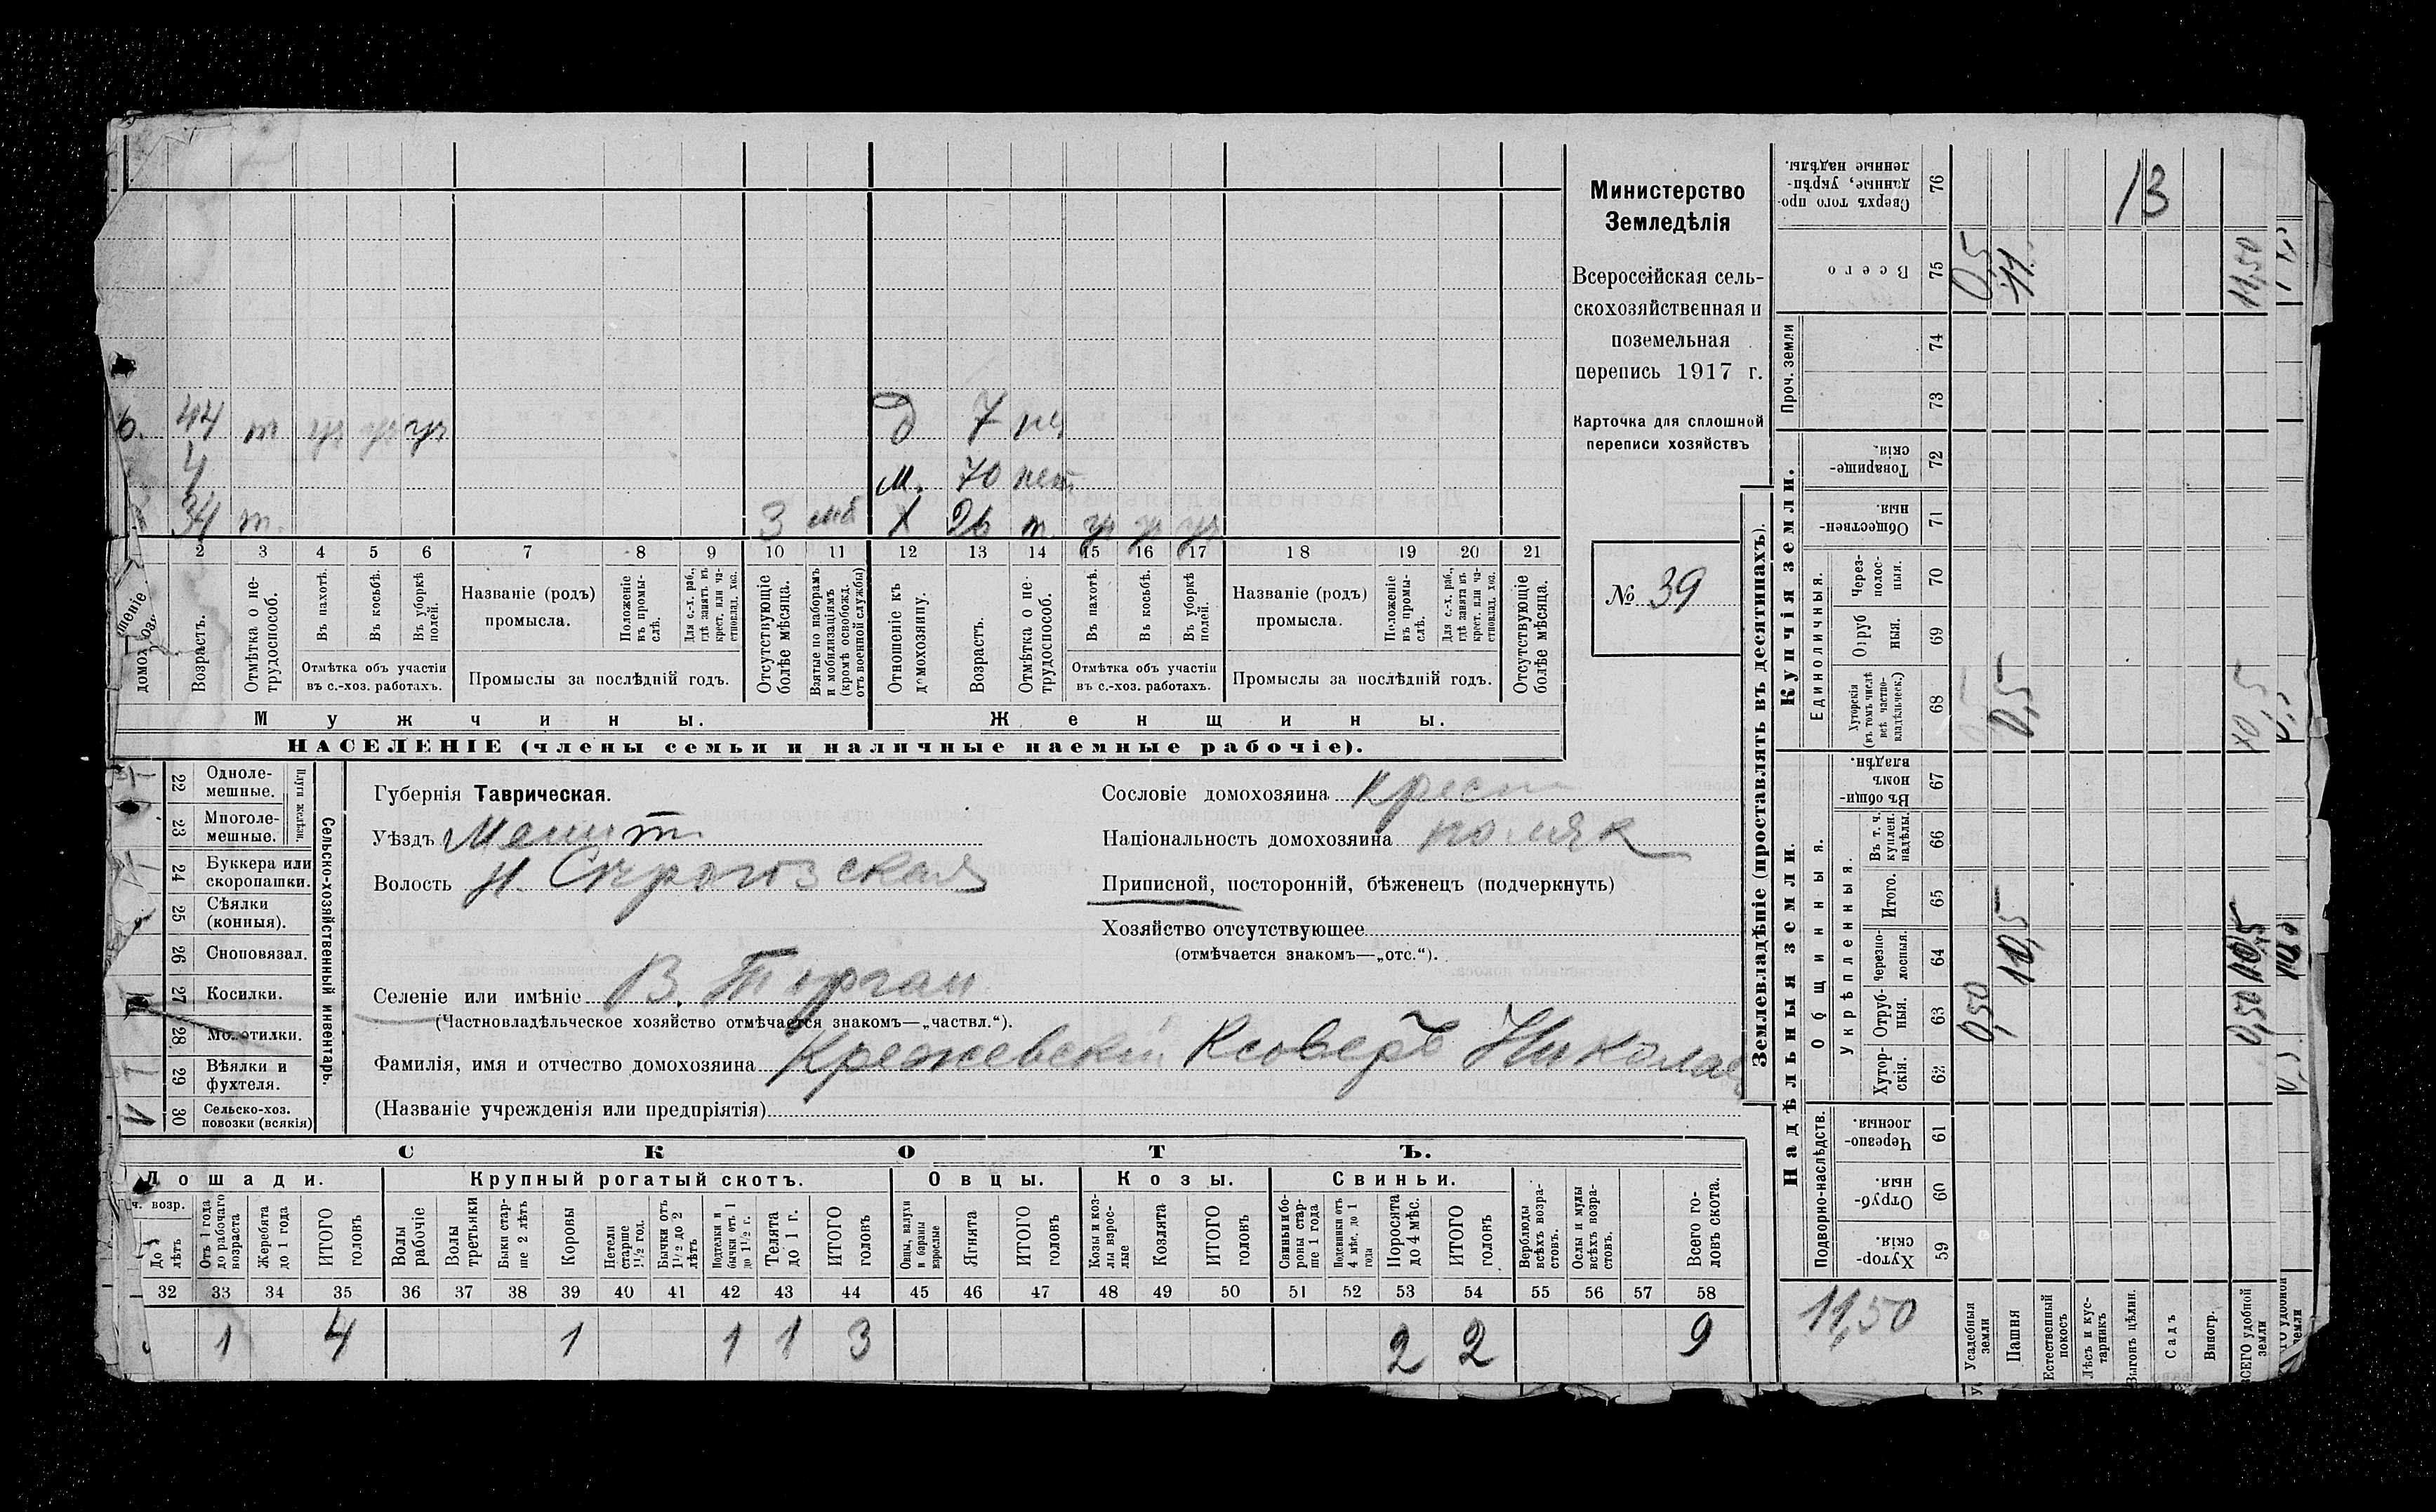 б. 44 т ур ур ур
Д 7
4
м. 70 нет
34 т. 3 моб
Х 26 т ур ур ур
2 3 4 5 6 7 8 9 10 11 12 13 14 15 16 17 18 19 20 21
домохоз.
Возрастъ.
Отмѣтка о не-
трудоспособ.
Въ пахотѣ.
Въ косьбѣ.
Въ уборкѣ
полей.
Отмѣтка объ участіи
въ с.-хоз. работахъ.
Названіе (родъ)
промысла.
Положеніе
въ промы-
слѣ.
Для с.-х. раб.,
гдѣ занятъ въ
крест. или ча-
стновлад. хоз.
Промыслы за послѣдній годъ.
Отсутствующіе
болѣе мѣсяца.
Взятые по наборамъ
и мобилизаціямъ
(кромѣ освобожд.
отъ военной службы)
Отношеніе къ
домохозяину.
Возрастъ.
Отмѣтка о не-
трудоспособ.
Въ пахотѣ.
Въ косьбѣ.
Въ уборкѣ
полей.
Отмѣтка объ участіи
въ с.-хоз. работахъ.
Названіе (родъ)
промысла.
Положеніе
въ промы-
слѣ.
Для с.-х. раб.,
гдѣ занята въ
крест. или ча-
стновлад. хоз.
Промыслы за послѣдній годъ.
Отсутствующіе
болѣе мѣсяца.
Мужчины.
Женщины.
НАСЕЛЕНІЕ (члены семьи и наличные наемные рабочіе).
Министерство
Земледѣлія
Всероссійская сель-
скохозяйственная и
поземельная
перепись 1917 г.
Карточка для сплошной
переписи хозяйствъ
№ 39
22 Одноле-
мешные.
23 Многоле-
мешные.
Плуги желѣзн.
24 Буккера или
скоропашки.
25 Сѣялки
(конныя).
26 Сноповязал.
27 Косилки.
28 Молотилки.
29 Вѣялки и
фухтеля.
30 Сельско-хоз.
повозки (всякія)
Сельско-хозяйственный инвентарь.
Губернія Таврическая.
Уѣздъ Мелит
Волость Н. Серогозская
Селеніе или имѣніе В. Торгаи
(Частновладѣльческое хозяйство отмѣчается знакомъ—„частвл.“).
Фамилія, имя и отчество домохозяина Крежевскій Ксаверъ Николаев
(Названіе учрежденія или предпріятія)
Сословіе домохозяина крест
Національность домохозяина поляк
Приписной, посторонній, бѣженецъ (подчеркнуть)
Хозяйство отсутствующее
(отмѣчается знакомъ—„отс.“).
СКОТЪ.
Лошади.
Крупный рогатый скотъ.
Овцы.
Козы.
Свиньи.
Отъ 1 года
до рабочаго
возраста
Жеребята
до 1 года
ИТОГО
головъ
Волы
рабочіе
Волы
третьяки
Быки стар-
ше 2 лѣтъ
Коровы
Нетели
старше
1½ год.
Бычки отъ
1½ до 2
лѣтъ
Подтелки и
бычки отъ 1
до 1½ г.
Телята
до 1 г.
ИТОГО
головъ
Овцы, валухи
и бараны
взрослые
Ягнята
ИТОГО
головъ
Козы и коз-
лы взрос-
лые
Козлята
ИТОГО
головъ
Свиньи и бо-
ровы стар-
ше 1 года
Подсвинки отъ
4 мѣс. до 1
года
Поросята
до 4 мѣс.
ИТОГО
головъ
Верблюды
всѣхъ возра-
стовъ.
Ослы и мулы
всѣхъ возра-
стовъ.
Всего го-
ловъ скота.
32 33 34 35 36 37 38 39 40 41 42 43 44 45 46 47 48 49 50 51 52 53 54 55 56 57 58
1 4 1 1 1 3 2 2 9
Землевладѣніе (проставлять въ десятинахъ).
Сверхъ того про-
данные, укрѣп-
ленные надѣлы.
76
13
Всего
75
0,5
11
11,50
Проч. земли
74
73
Купчія земли.
Товарище-
скія.
72
Обществен-
ныя.
71
Единоличныя.
Через-
полос-
ныя.
70
Отруб
ныя.
69
Хуторскія
(въ томъ числѣ
всѣ частно-
владѣльческ.)
68
0,5
Надѣльныя земли.
Въ общи-
номъ
владѣн.
67
Общинныя.
Укрѣпленныя.
Въ т. ч.
куплен.
надѣлы.
66
Итого.
65
Черезпо-
лосныя.
64
10,5
Отруб-
ныя.
63
0,50
0,50
Хутор-
скія.
62
Подворно-наслѣдств.
Черезпо-
лосныя.
61
Отруб-
ныя.
60
Хутор-
скія.
59
11,50
Усадебныя
земли
Пашня
Естественный
покосъ
Лѣсъ и кус-
тарникъ
Выгонъ цѣлин.
Садъ
Виногр.
ВСЕГО удобной
земли